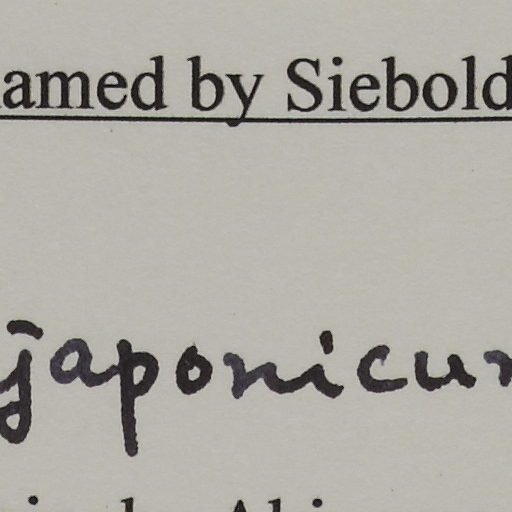 named by Siebold
japonicum